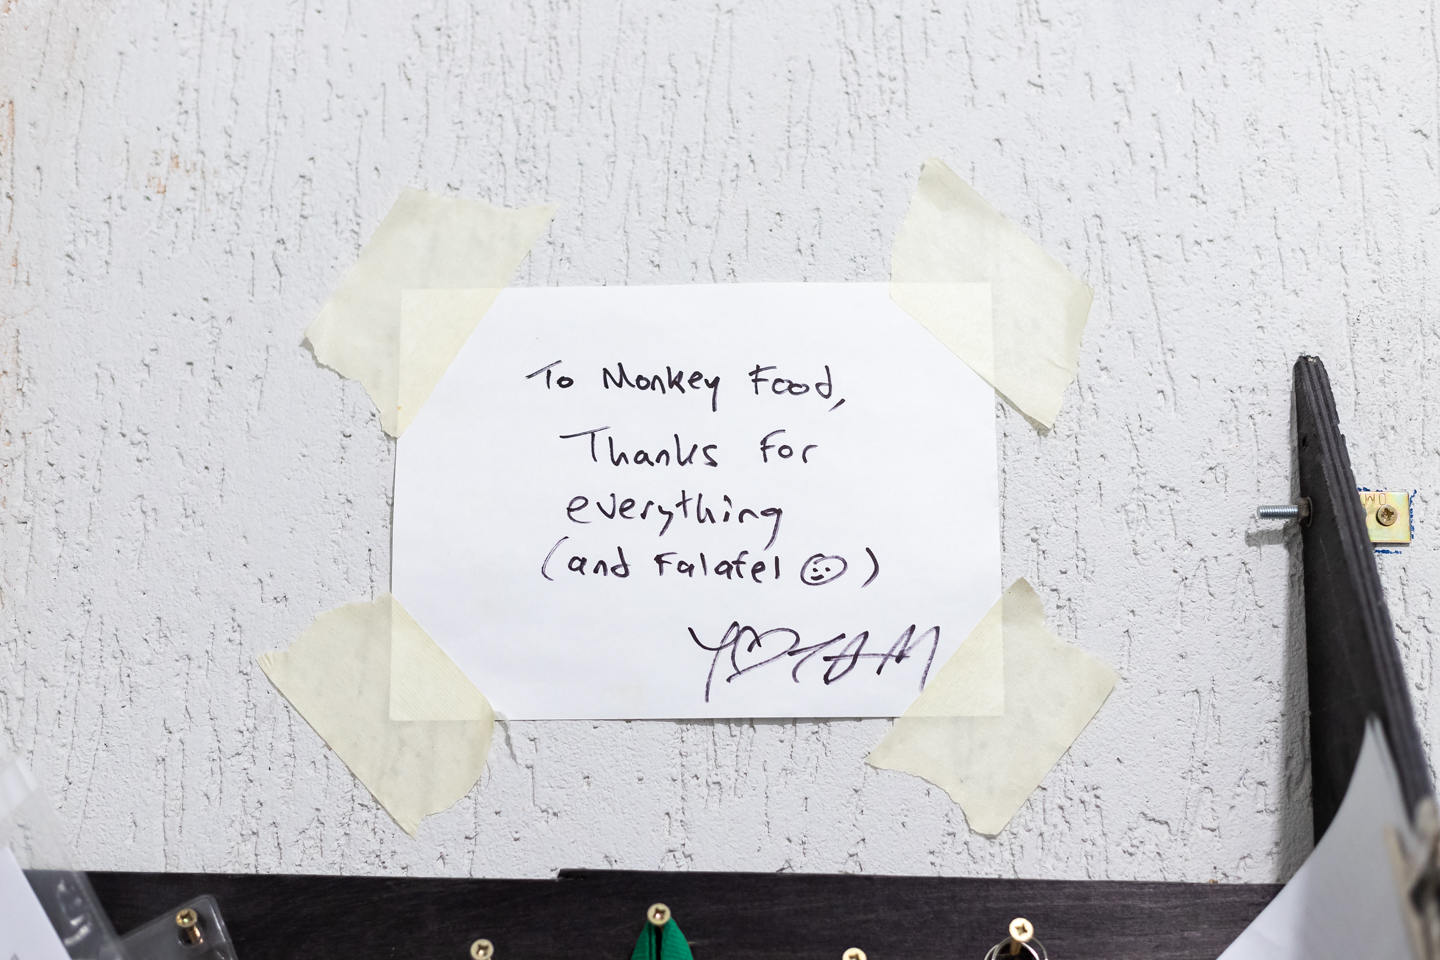 To Monkey Food,
Thanks for
everything
(and Falafel ☺)
YOTAM